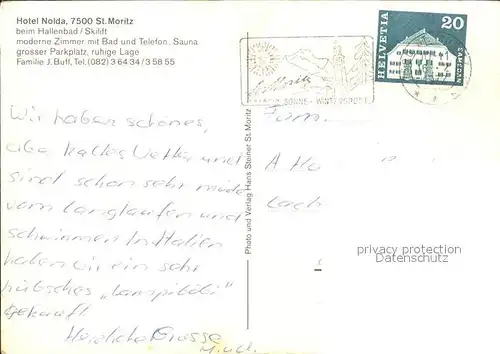 Hotel Nolda, 7500 St.Moritz
beim Hallenbad / Skilift
moderne Zimmer mit Bad und Telefon. Sauna
grosser Parkplatz, ruhige Lage
Familie J. Buff, Tel. (082) 3 64 34 / 3 58 55
HELVETIA
20
SAMEDAN
SONNE - WINTERSPORT
Wir haben schönes,
aber kaltes Wetter und
sind schon sehr müde
vom Langlaufen und
schwimmen In Italien
haben wir ein sehr
hübsches
gekauft
Herzliche Grüsse
Fam
A
Photo und Verlag Hans Steiner St. Moritz
privacy protection
Datenschutz